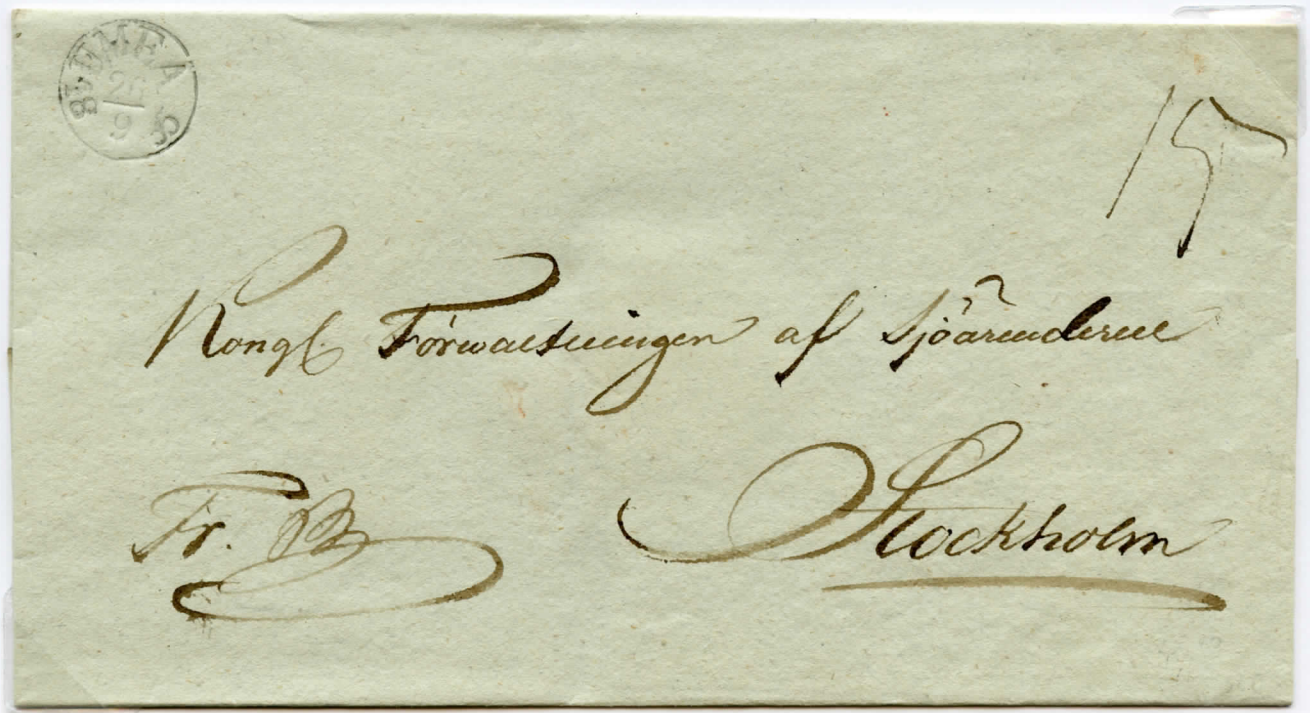 UMEA
26
9
1835
15
Kongl. Förwaltningen af Sjöärenderne
Fr.
Stockholm